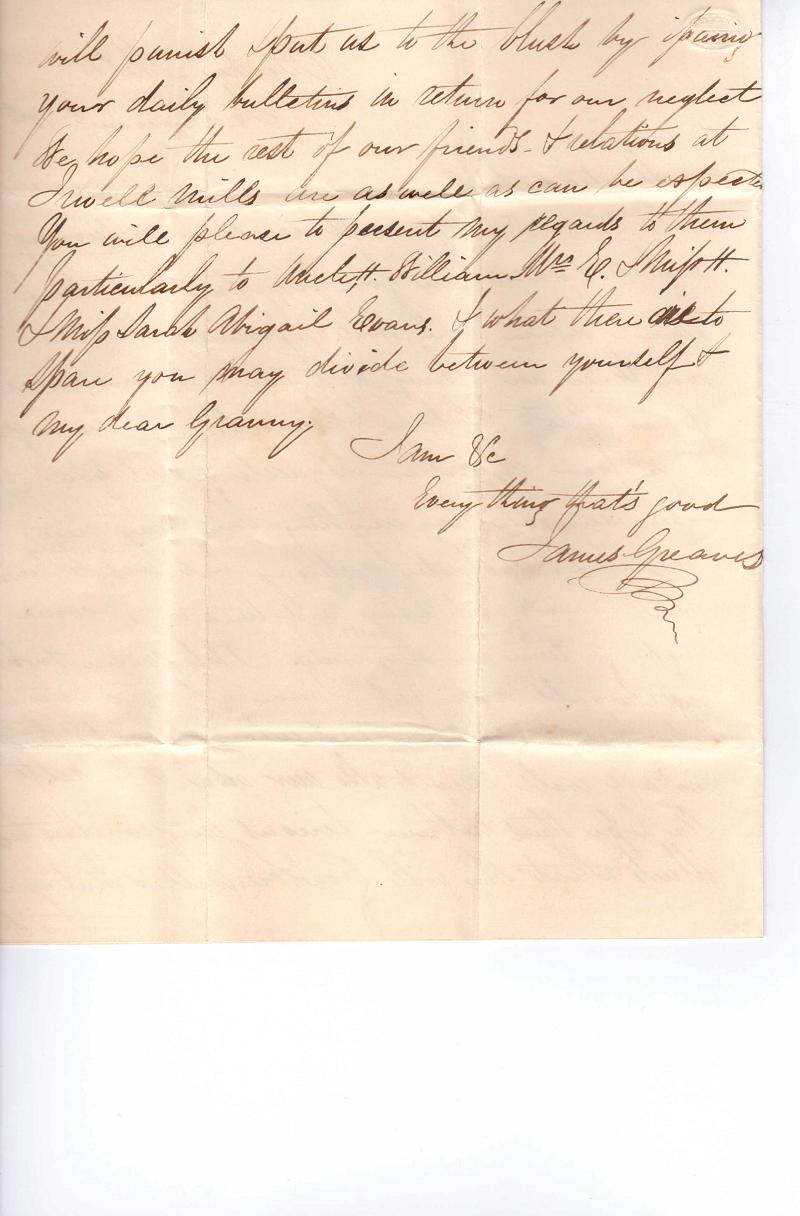 will punish & put us to the blush by issuing
your daily bulletins in return for our neglect
We hope the rest of our friends & relations at
Irwell Mills are as well as can be expected
You will please to present my regards to them
particularly to Uncle H. William Mrs E. & Miss H.
& Miss Sarah Abigail Evans. & what there is to
spare you may divide between yourself &
my dear Granny.
I am &c
Every thing that's good
James Greaves